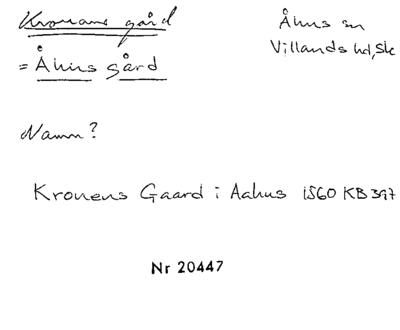 Kronans gård
Åhus sn
Villands hd, Sk
= Åhus gård
Namn?
Kronens Gaard i Aahus 1560 KB 397
Nr 20447